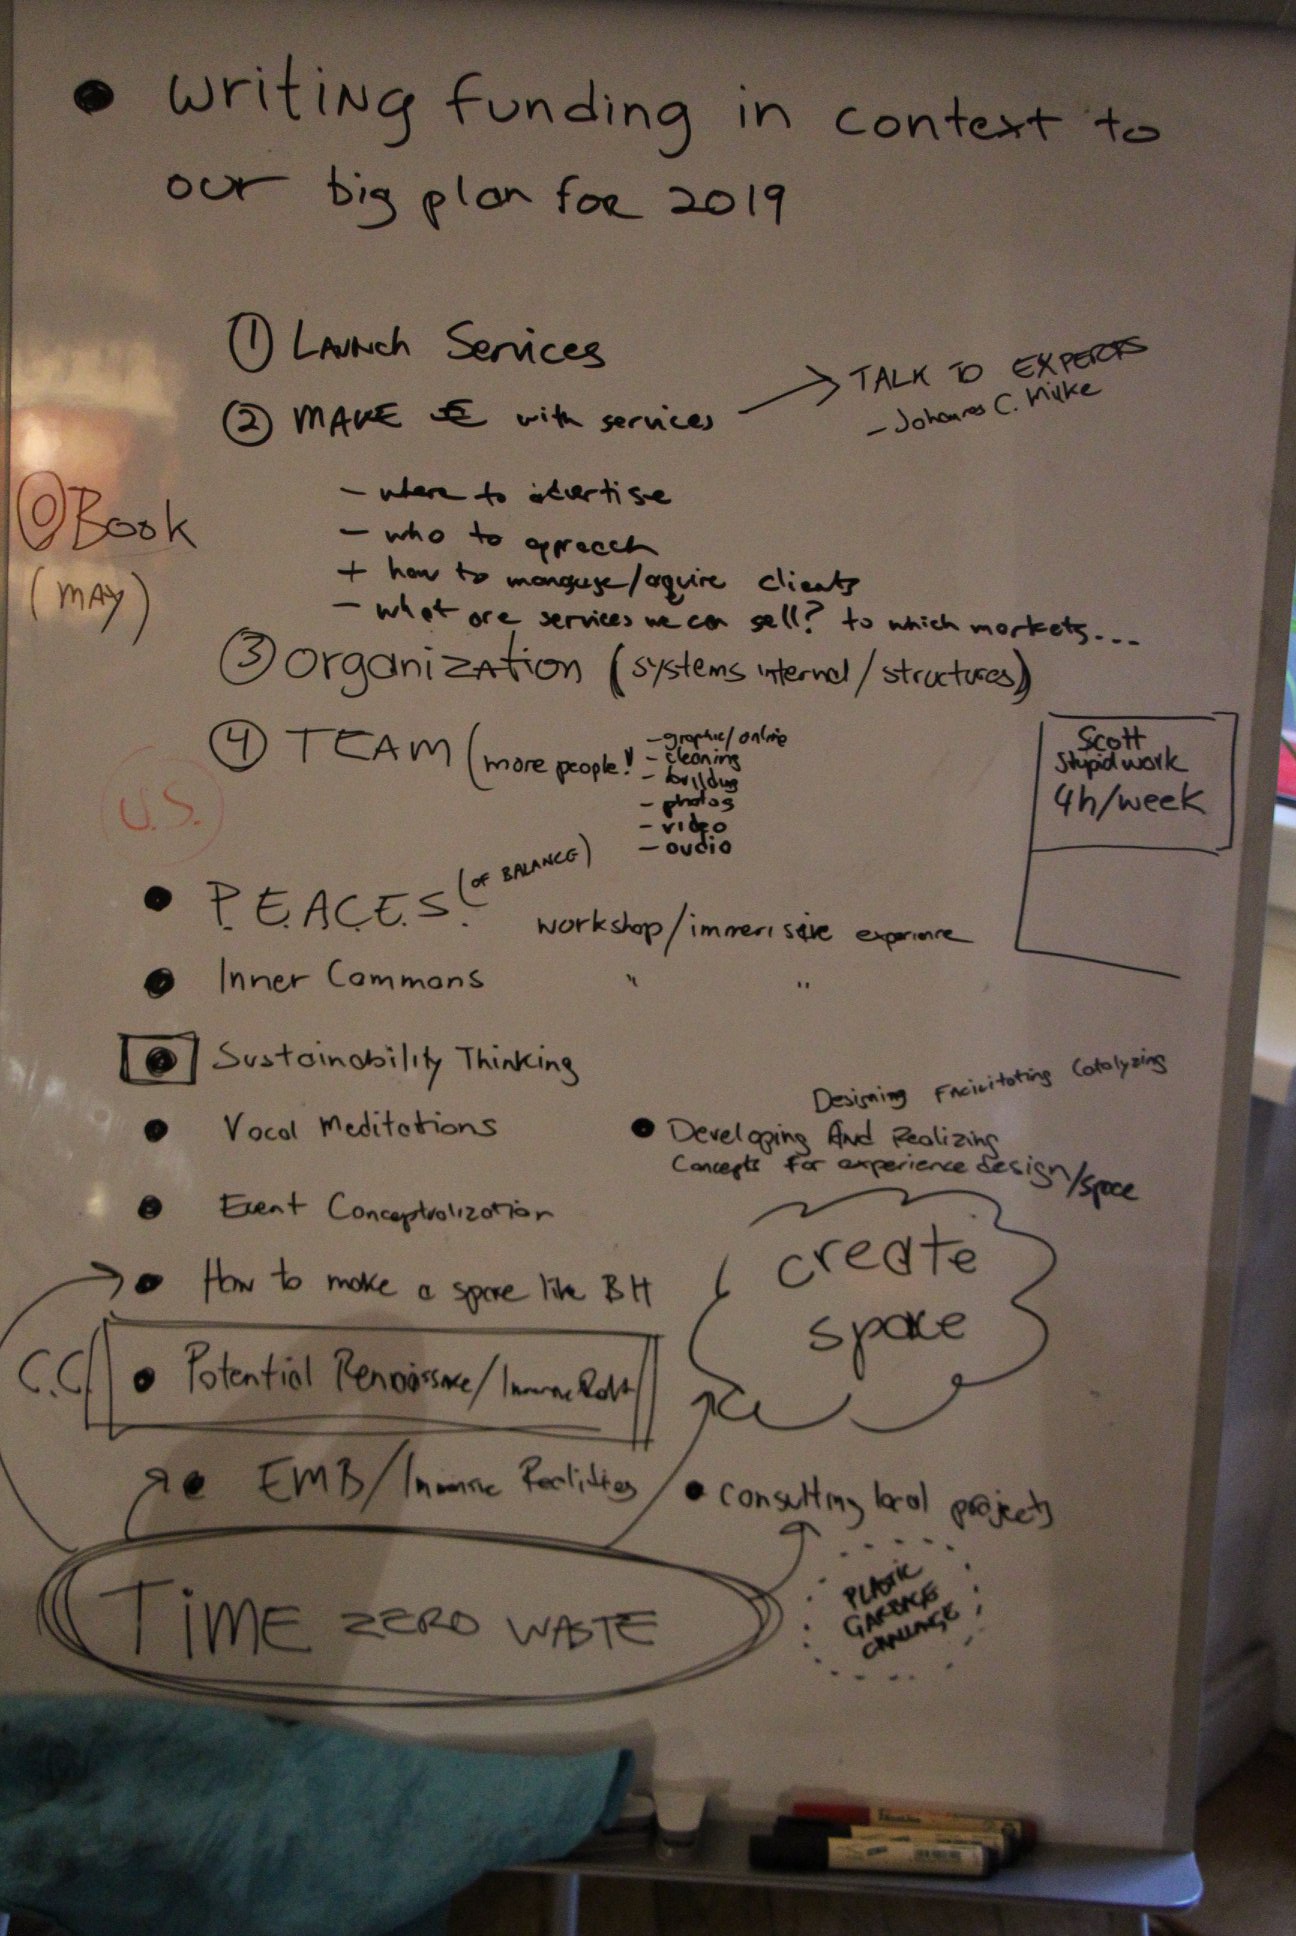 • Writing funding in context to
our big plan for 2019
① Launch Services
② MAKE € with services
→ TALK TO EXPERTS
- Johannes C.
⓪ Book
(MAY)
- where to advertise
- who to approach
+ how to manguge/aquire clients
- what are services we can sell? to which markets...
③ Organization (systems internal/structures)
④ TEAM (more people!
- graphic/online
- cleaning
- building
- photos
- video
- audio
Scott
Stupid work
4h/week
U.S.
• P.E.A.C.E.S. (OF BALANCE)
workshop/immersive experience
• Inner Commons " "
• Sustainability Thinking
• Vocal Meditations
Designing Facilitating Catalyzing
• Developing And Realizing
Concepts for experience design/space
• Event Conceptualization
create
space
• How to make a space like BH
C.C.
• Potential Renaissance/
• EMB/Immersive Realities
• Consulting local projects
TIME ZERO WASTE
PLASTIC
GARBAGE
CHALLANGE